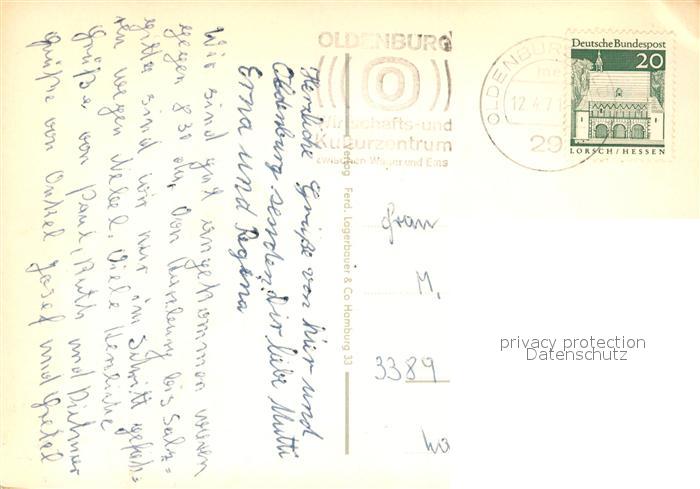 OLDENBURG
((( O )))
Wirtschafts-und
Kulturzentrum
zwischen Weser und Ems
OLDENBURG
12.4.71
29
Deutsche Bundespost
20
LORSCH/HESSEN
Herzliche Grüße von hier und
Oldenburg senden Dir liebe Mutti
Erna und Regina
Wir sind gut angekommen waren
gegen 8 30 da. Von bis Salz=
gitter sind wir nur im Schritt gefah=
ren wegen Nebel. Viele herzliche
Grüße von Paul, Ruth und Dietmar
grüße von Onkel Josef und Gretel
Verlag Ferd. Lagerbauer & Co Hamburg 33
Frau
M.
3389
privacy protection
Datenschutz